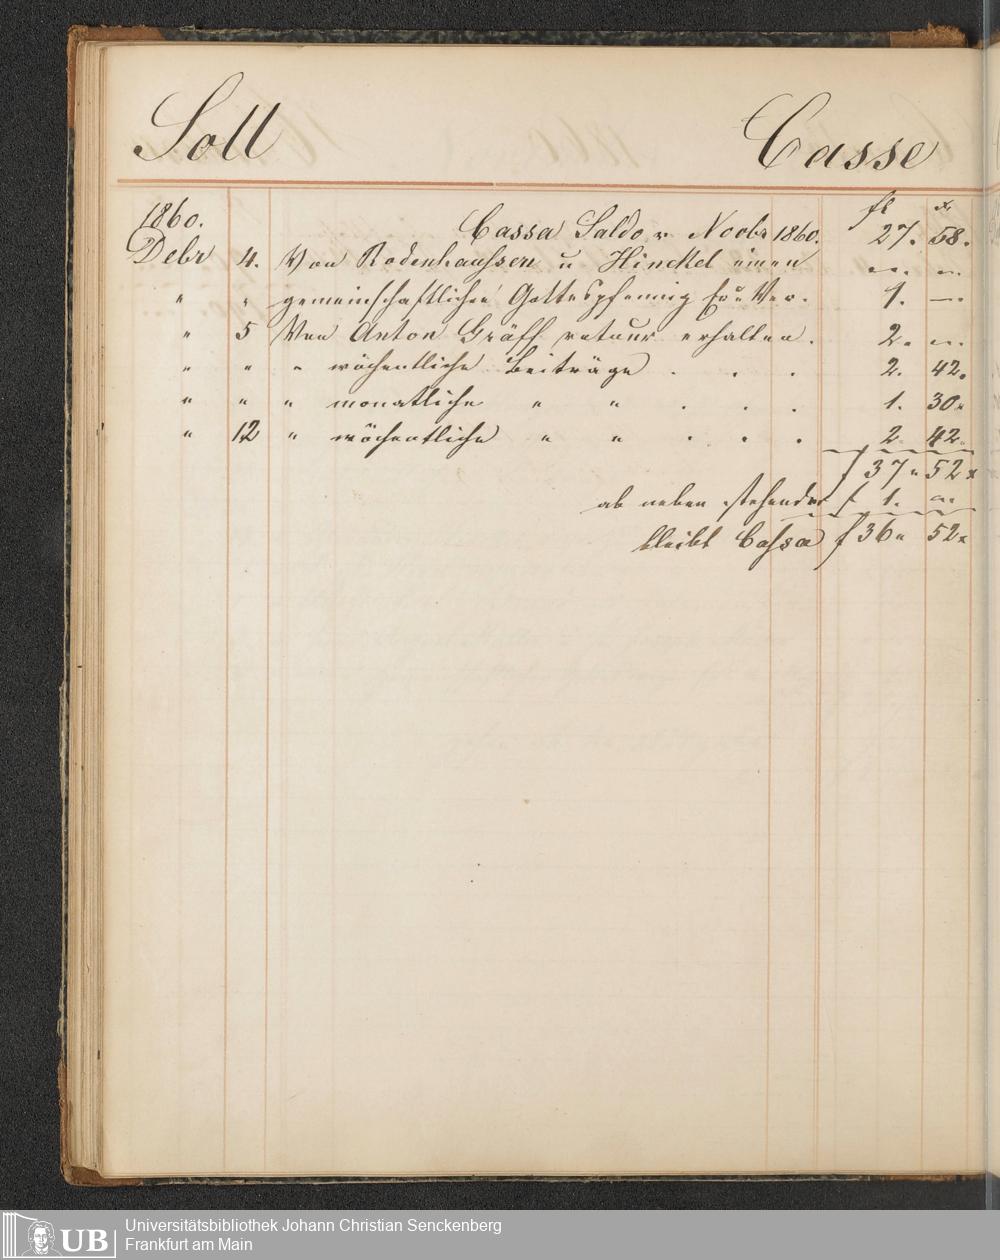 Soll Casse
1860. Cassa Saldo v Novbr 1860. fl 27. x 58.
Debr 4. Von Rodenhaussen u Hinckel einen „. „.
" " gemeinschaftlichen Gottespfennig 1. —.
" 5 Von Anton Gräff retour erhalten. 2. „.
" " " wöchentliche Beiträge . . . 2. 42.
" " " monatliche " " . . . 1. 30.
" 12 " wöchentliche " " . . . 2. 42.
f 37 " 52 x
ab neben stehender f 1. „.
bleibt Cassa f 36 " 52 x
UB Universitätsbibliothek Johann Christian Senckenberg
Frankfurt am Main